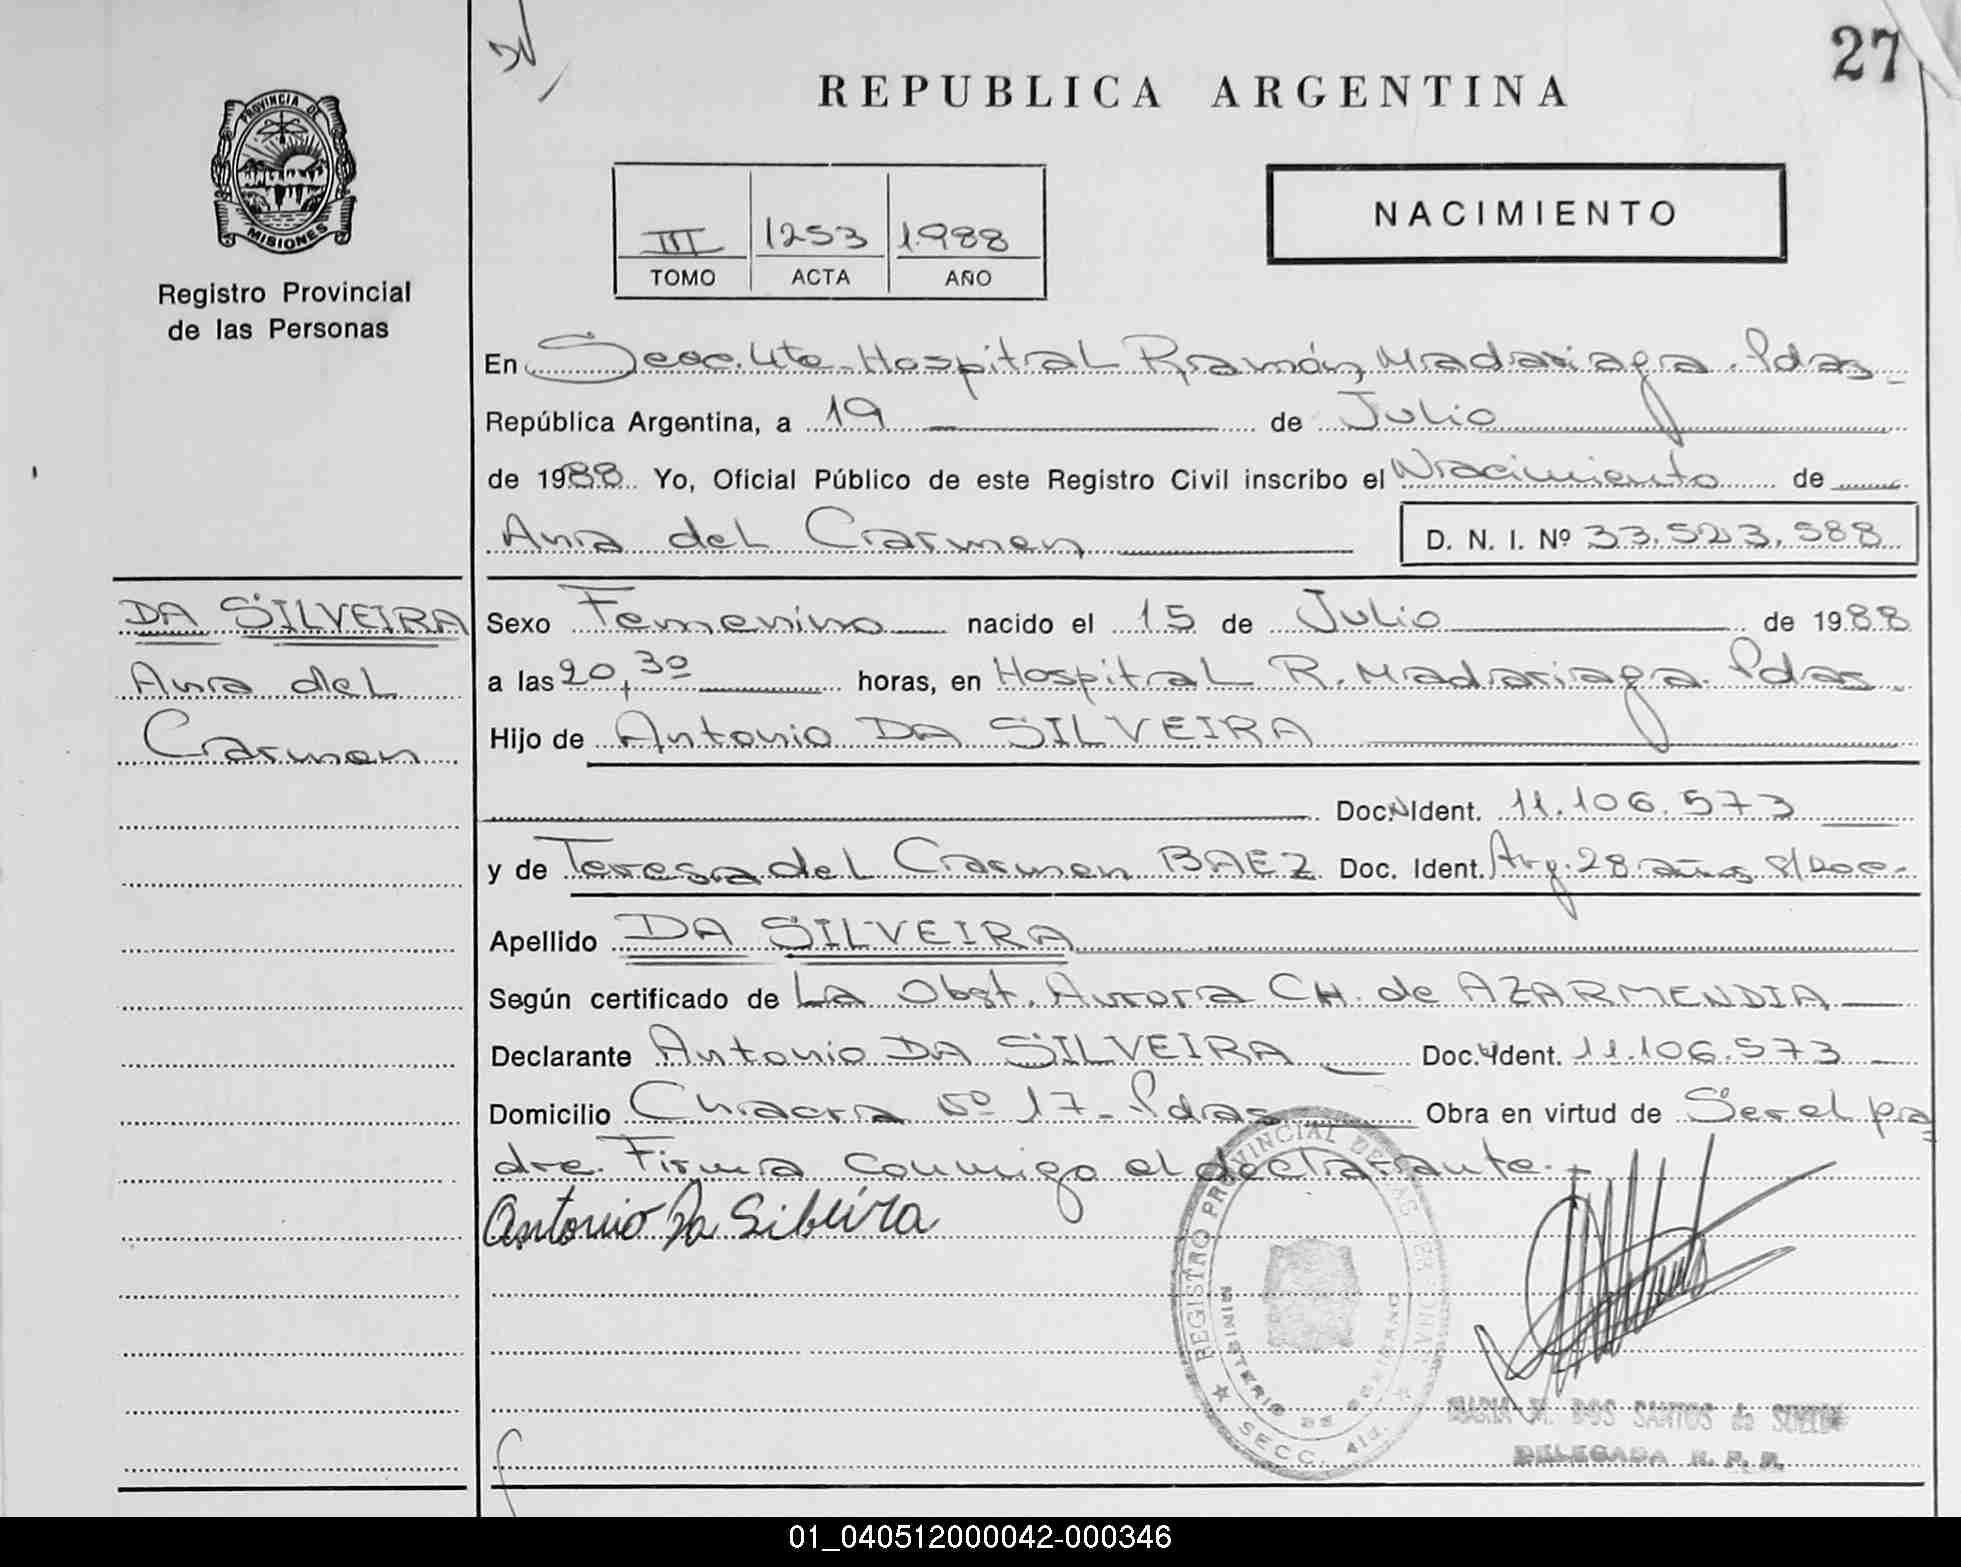 27
REPUBLICA ARGENTINA
PROVINCIA DE
MISIONES
Registro Provincial
de las Personas
III 1253 1988
TOMO ACTA AÑO
NACIMIENTO
En Secc. 4ta. Hospital Ramón Madariaga. Pdas
República Argentina, a 19 de Julio
de 1988 Yo, Oficial Público de este Registro Civil inscribo el Nacimiento de
Ana del Carmen D. N. I. Nº 33.523.588
DA SILVEIRA
Ana del
Carmen
Sexo Femenino nacido el 15 de Julio de 1988
a las 20,30 horas, en Hospital R. Madariaga. Pdas
Hijo de Antonio DA SILVEIRA
Doc. Ident. 11.106.573
y de Teresa del Carmen BAEZ Doc. Ident. Arg. 28 años s/doc.
Apellido DA SILVEIRA
Según certificado de La Obst. Aurora CH. de AZARMENDIA
Declarante Antonio DA SILVEIRA Doc. Ident. 11.106.573
Domicilio Chacra 17 - Pdas Obra en virtud de Ser el pa
dre. Firma conmigo el declarante.
Antonio Da Silveira
REGISTRO PROVINCIAL DE LAS PERSONAS
MINISTERIO DE GOBIERNO
SECC. 4ta.
MARIA M. DOS SANTOS de
DELEGADA R. P. P.
01_040512000042-000346